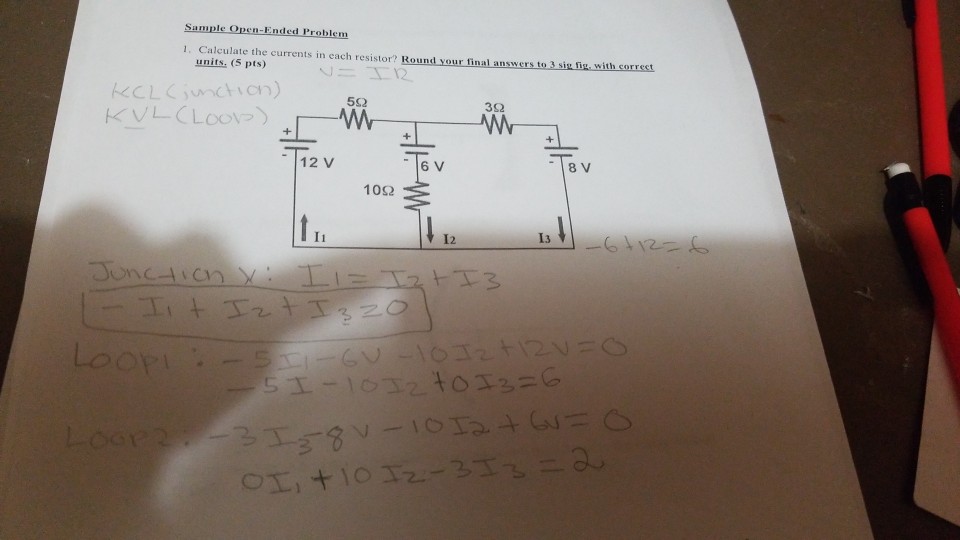 Sample Open-Ended Problem
1. Calculate the currents in each resistor? Round your final answers to 3 sig fig. with correct
units. (5 pts)
V = IR
KCL (junction)
KVL (Loop)
5Ω
3Ω
+
+
+
-
12 V
-
6 V
-
8 V
10Ω
I1
I2
I3
-6+12=6
Junction : I1 = I2 + I3
- I1 + I2 + I3 = 0
Loop1 : -5I1-6V-10I2+12V=0
-5I-10I2+0I3=6
Loop2: -3I3-8V-10I2+6V=0
0I1+10I2-3I3=2